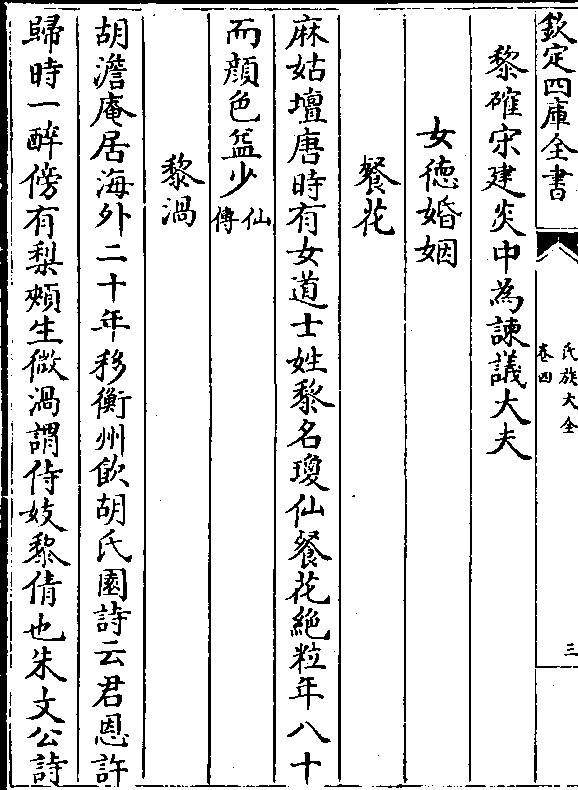 欽定四庫全書
氏族大全
卷四
三
黎確宋建炎中為諫議大夫
女徳婚姻
餐花
麻姑壇唐時有女道士姓黎名瓊仙餐花絶粒年八十
而顔色益少仙傳
黎渦
胡澹庵居海外二十年移衡州飲胡氏園詩云君恩許
歸時一醉傍有梨頰生微渦謂侍妓黎倩也朱文公詩